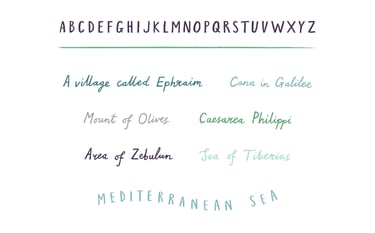 ABCDEFGHIJKLMNOPQRSTUVWXYZ
A village called Ephraim Cana in Galilee
Mount of Olives Caesarea Philippi
Area of Zebulun Sea of Tiberias
MEDITERRANEAN SEA